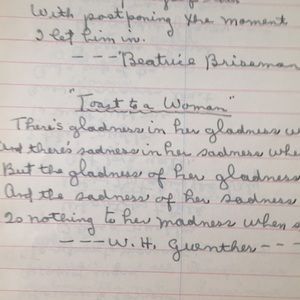 with postponing the moment
I let him in.
- - - Beatrice Briseman
"Toast to a Woman"
There's gladness in her gladness
And there's sadness in her sadness
But the gladness of her gladness
And the sadness of her sadness
Is nothing to her madness when
- - - W. H. Guenther - -